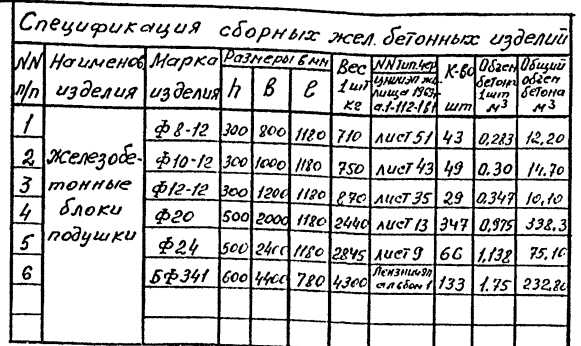 Спецификация сборных жел. бетонных изделий
NN п/п Наименов. изделия Марка изделия Размеры в мм h B l Вес 1 шт кг NN тип. чер. а.1-112-181 К-во шт Объем бетона 1 шт м³ Общий объем бетона м³
1 Ф 8-12 300 800 1180 710 лист 51 43 0.283 12,20
2 Железобе- Ф 10-12 300 1000 1180 750 лист 43 49 0.30 14.70
3 тонные Ф 12-12 300 1200 1180 870 лист 35 29 0.347 10,10
4 блоки Ф 20 500 2000 1180 2440 лист 13 347 0,975 338,3
5 подушки Ф 24 500 2400 1180 2845 лист 9 66 1,138 75,10
6 БФ 341 600 4400 780 4300 альбом 1 133 1.75 232,80